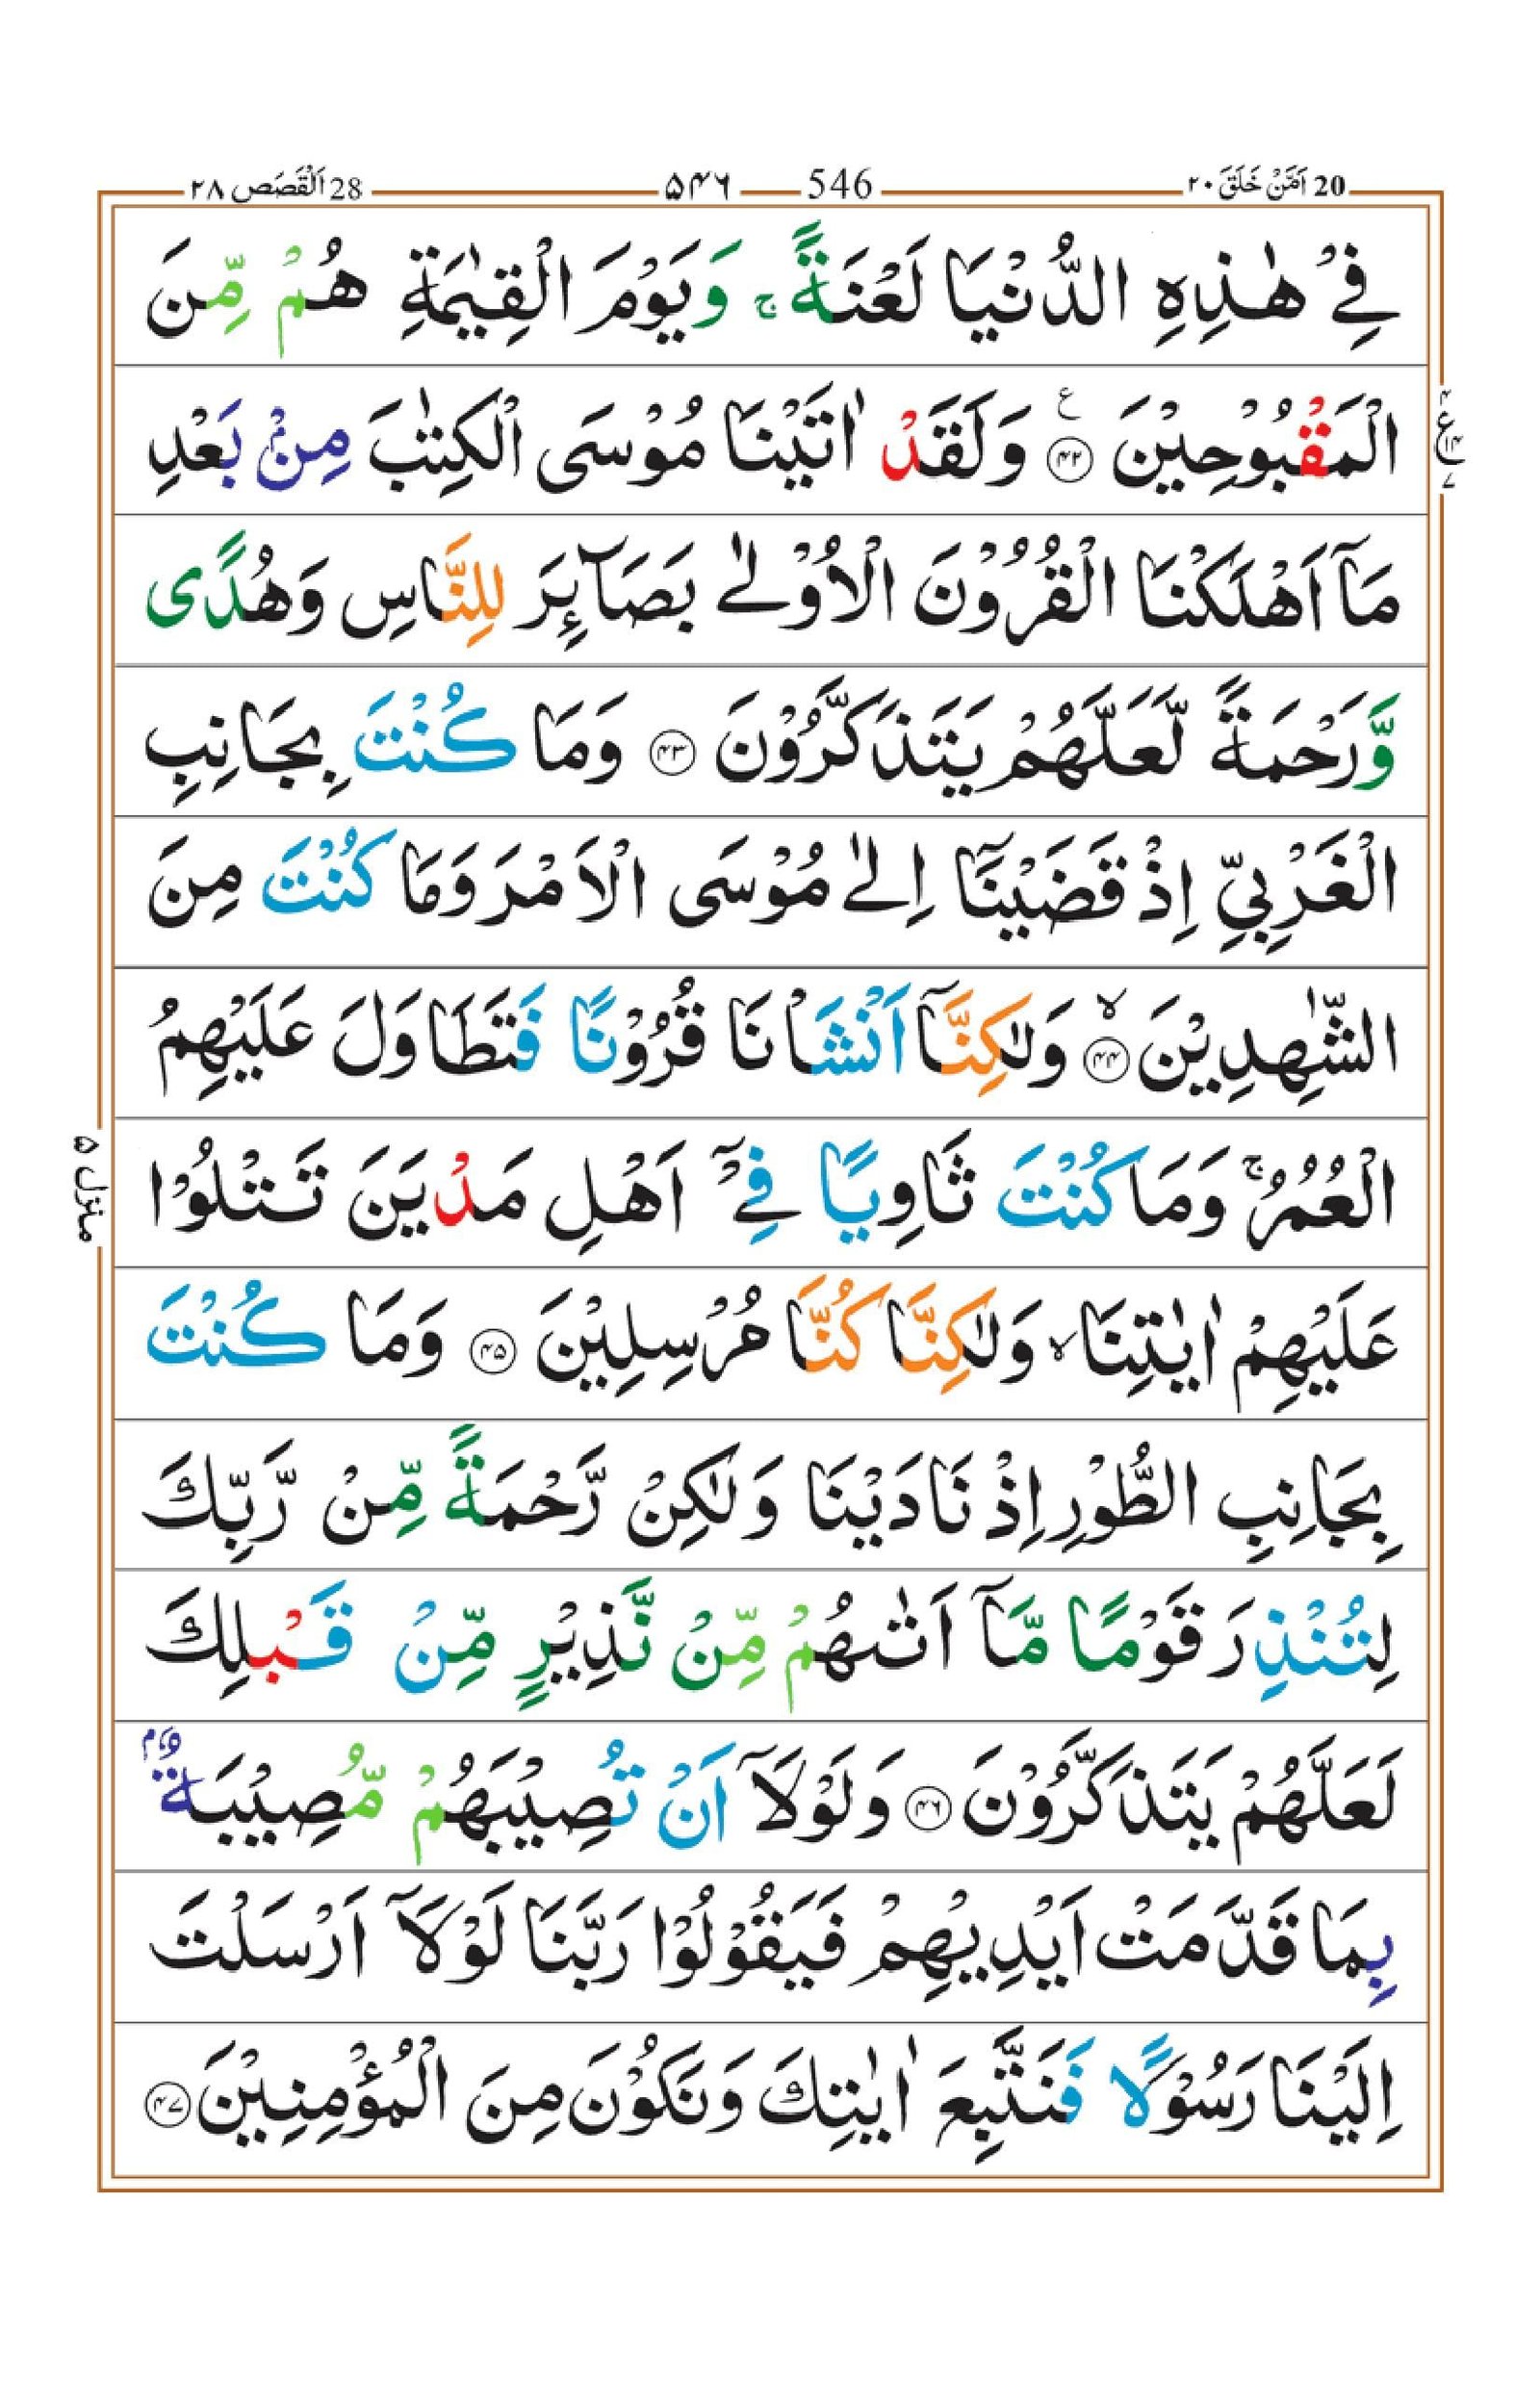 20 اَمَّنْ خَلَقَ ۲۰ 546 ۵۴۶ 28 اَلْقَصَص ۲۸
فِيْ هٰذِهِ الدُّنْيَا لَعْنَةً ۚ وَيَوْمَ الْقِيٰمَةِ هُمْ مِّنَ
الْمَقْبُوْحِيْنَ ﴿۴۲﴾ ع وَلَقَدْ اٰتَيْنَا مُوْسَى الْكِتٰبَ مِنْۢ بَعْدِ
مَاۤ اَهْلَكْنَا الْقُرُوْنَ الْاُوْلٰى بَصَآئِرَ لِلنَّاسِ وَهُدًى
وَّرَحْمَةً لَّعَلَّهُمْ يَتَذَكَّرُوْنَ ﴿۴۳﴾ وَمَا كُنْتَ بِجَانِبِ
الْغَرْبِيِّ اِذْ قَضَيْنَاۤ اِلٰى مُوْسَى الْاَمْرَ وَمَا كُنْتَ مِنَ
الشّٰهِدِيْنَ ﴿۴۴﴾ ۙ وَلٰكِنَّاۤ اَنْشَاْنَا قُرُوْنًا فَتَطَاوَلَ عَلَيْهِمُ
الْعُمُرُ ۚ وَمَا كُنْتَ ثَاوِيًا فِيْۤ اَهْلِ مَدْيَنَ تَتْلُوْا
عَلَيْهِمْ اٰيٰتِنَا ۙ وَلٰكِنَّا كُنَّا مُرْسِلِيْنَ ﴿۴۵﴾ وَمَا كُنْتَ
بِجَانِبِ الطُّوْرِ اِذْ نَادَيْنَا وَلٰكِنْ رَّحْمَةً مِّنْ رَّبِّكَ
لِتُنْذِرَ قَوْمًا مَّاۤ اَتٰىهُمْ مِّنْ نَّذِيْرٍ مِّنْ قَبْلِكَ
لَعَلَّهُمْ يَتَذَكَّرُوْنَ ﴿۴۶﴾ وَلَوْلَاۤ اَنْ تُصِيْبَهُمْ مُّصِيْبَةٌۢ
بِمَا قَدَّمَتْ اَيْدِيْهِمْ فَيَقُوْلُوْا رَبَّنَا لَوْلَاۤ اَرْسَلْتَ
اِلَيْنَا رَسُوْلًا فَنَتَّبِعَ اٰيٰتِكَ وَنَكُوْنَ مِنَ الْمُؤْمِنِيْنَ ﴿۴۷﴾
۴ ع ۱۴ ۷
منزل ۵